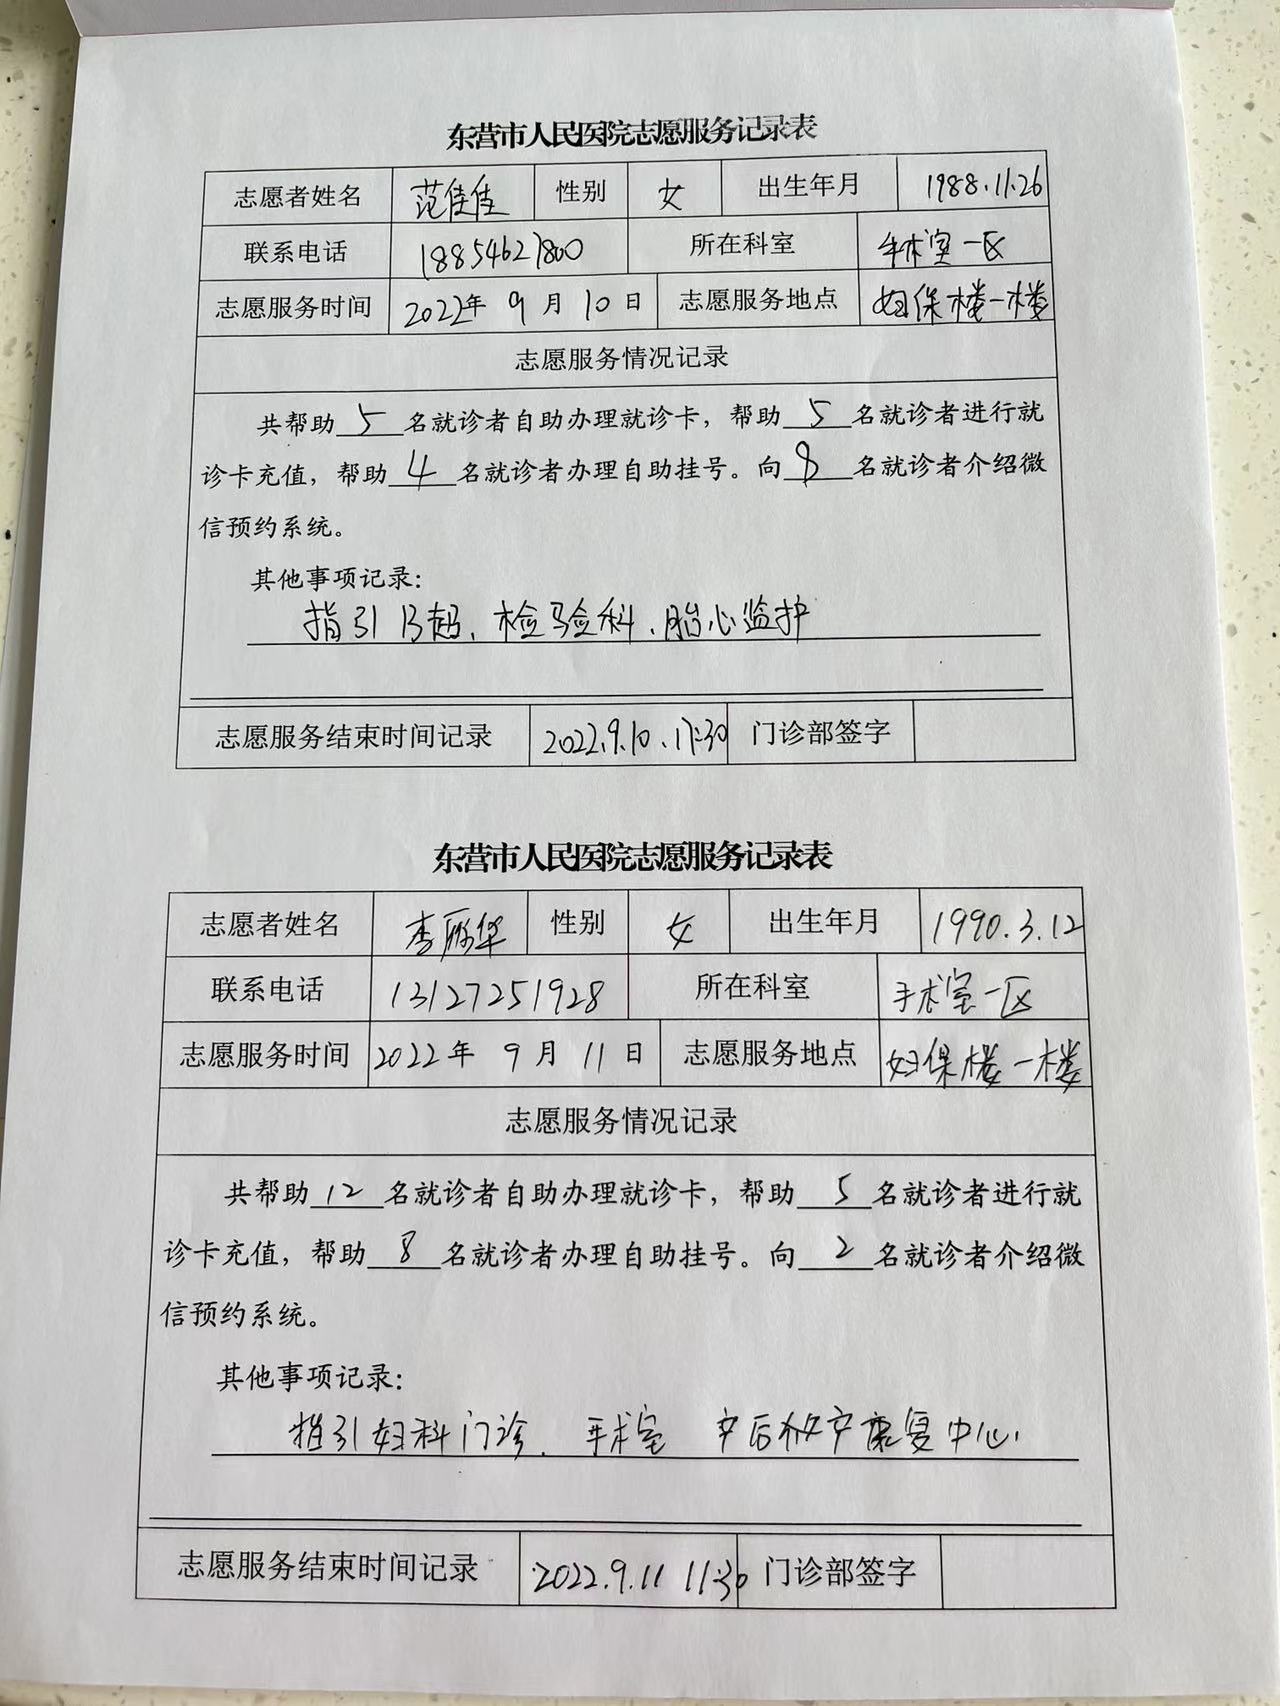 东营市人民医院志愿服务记录表
志愿者姓名 范佳佳 性别 女 出生年月 1988.11.26
联系电话 18854627800 所在科室 手术室一区
志愿服务时间 2022年 9 月 10 日 志愿服务地点 妇保楼一楼
志愿服务情况记录
共帮助 5 名就诊者自助办理就诊卡，帮助 5 名就诊者进行就
诊卡充值，帮助 4 名就诊者办理自助挂号。向 8 名就诊者介绍微
信预约系统。
其他事项记录：
指引B超、检验科、胎心监护
志愿服务结束时间记录 2022.9.10.17:30 门诊部签字
东营市人民医院志愿服务记录表
志愿者姓名 李雁华 性别 女 出生年月 1990.3.12
联系电话 13127251928 所在科室 手术室一区
志愿服务时间 2022年 9 月 11 日 志愿服务地点 妇保楼一楼
志愿服务情况记录
共帮助 12 名就诊者自助办理就诊卡，帮助 5 名就诊者进行就
诊卡充值，帮助 8 名就诊者办理自助挂号。向 2 名就诊者介绍微
信预约系统。
其他事项记录：
指引妇科门诊、手术室 产后 康复中心.
志愿服务结束时间记录 2022.9.11 11:30 门诊部签字